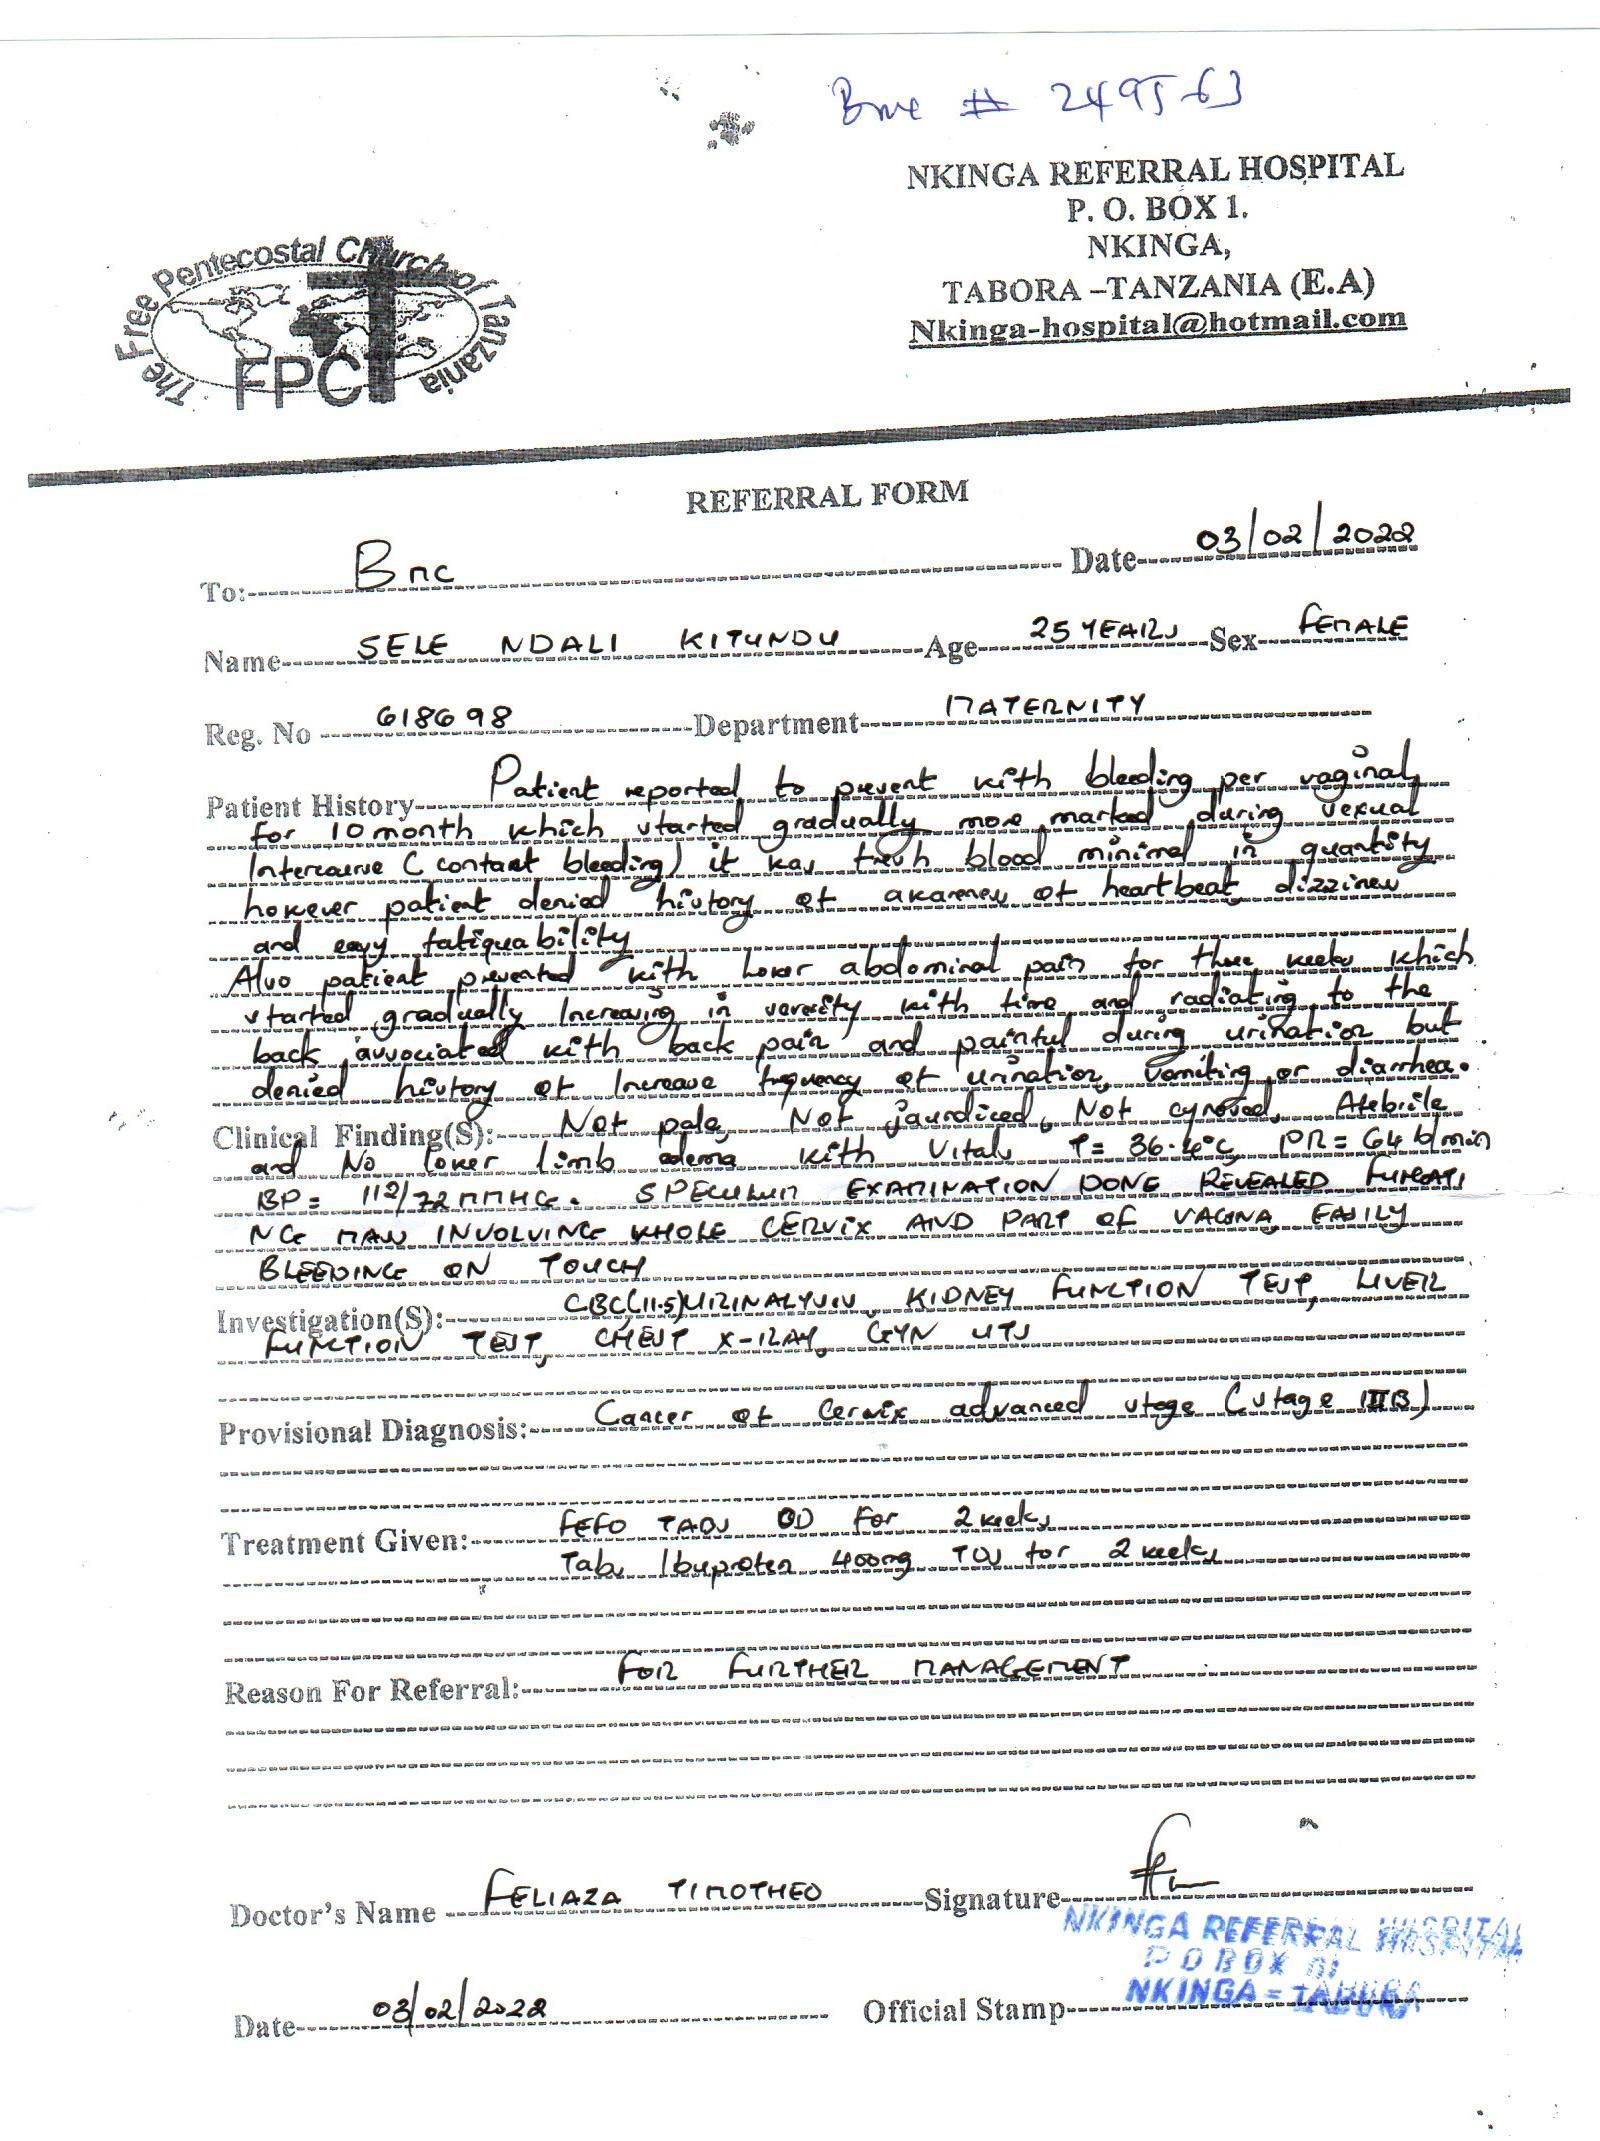 Bmc # 249563
NKINGA REFERRAL HOSPITAL
P. O. BOX 1.
NKINGA,
TABORA –TANZANIA (E.A)
Nkinga-hospital@hotmail.com
The Free Pentecostal Church of Tanzania
FPCT
REFERRAL FORM
To: Bmc Date 03/02/2022
Name SELE NDALI KITUNDU Age 25 YEARS Sex FEMALE
Reg. No 618698 Department MATERNITY
Patient History Patient reported to present with bleeding per vaginal
for 10 month which started gradually more marked during sexual
Intercourse (contact bleeding) it was fresh blood minimal in quantity
however patient denied history of awareness of heartbeat, dizziness
and easy fatiquability
Also patient presented with lower abdominal pain for three weeks which
started gradually Increasing in severity with time and radiating to the
back associated with back pain and painful during urination but
denied history of Increase frequency of urination, vomiting or diarrhea.
Clinical Finding(S): Not pale, Not jaundiced, Not cynosed, Afebrile
and No lower limb edema with Vitals T= 36.4°C, PR= 64 b/min
BP= 112/72 MMHG. SPECULUM EXAMINATION DONE REVEALED FUNGATI
NG MASS INVOLVING WHOLE CERVIX AND PART OF VAGINA EASILY
BLEEDING ON TOUCH
Investigation(S): CBC(11.5) URINALYSIS, KIDNEY FUNCTION TEST, LIVER
FUNCTION TEST, CHEST X-RAY, GYN UTS
Provisional Diagnosis: Cancer of Cervix advanced stage (stage IIIB)
Treatment Given: FEFO TABS OD For 2 weeks
Tabs Ibuprofen 400mg TDS for 2 weeks
Reason For Referral: FOR FURTHER MANAGEMENT
Doctor's Name FELIAZA TIMOTHEO Signature
NKINGA REFERRAL HOSPITAL
P O BOX 01
NKINGA = TABORA
Date 03/02/2022 Official Stamp